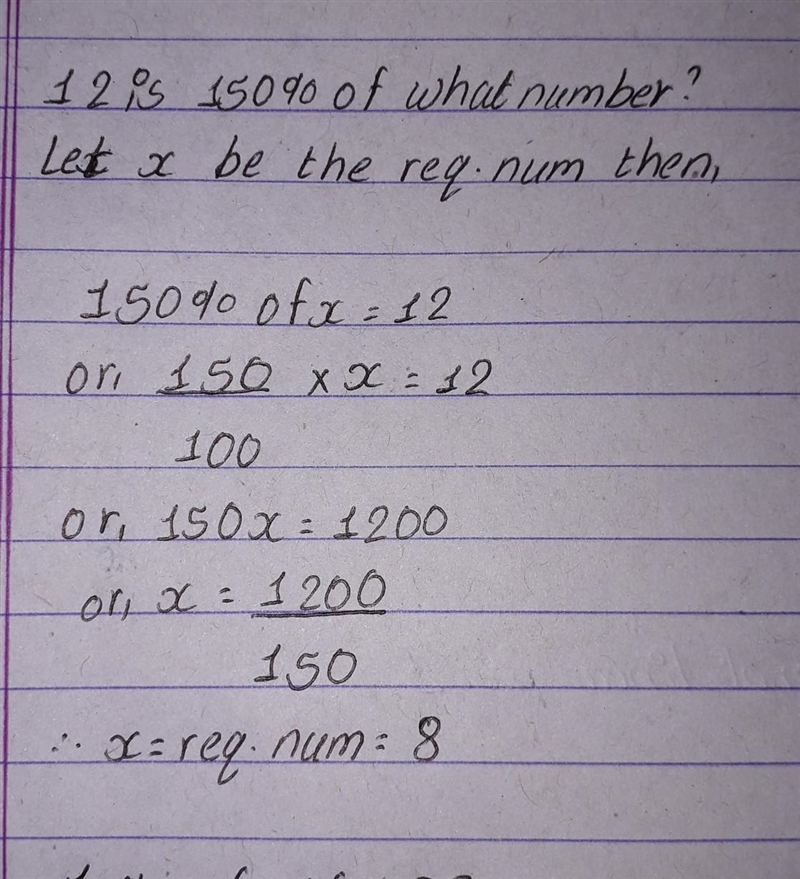 12 is 150% of what number?
Let x be the req. num then,
150% of x = 12
or, 150 × x = 12
100
or, 150x = 1200
or, x = 1200
150
∴ x = req. num = 8